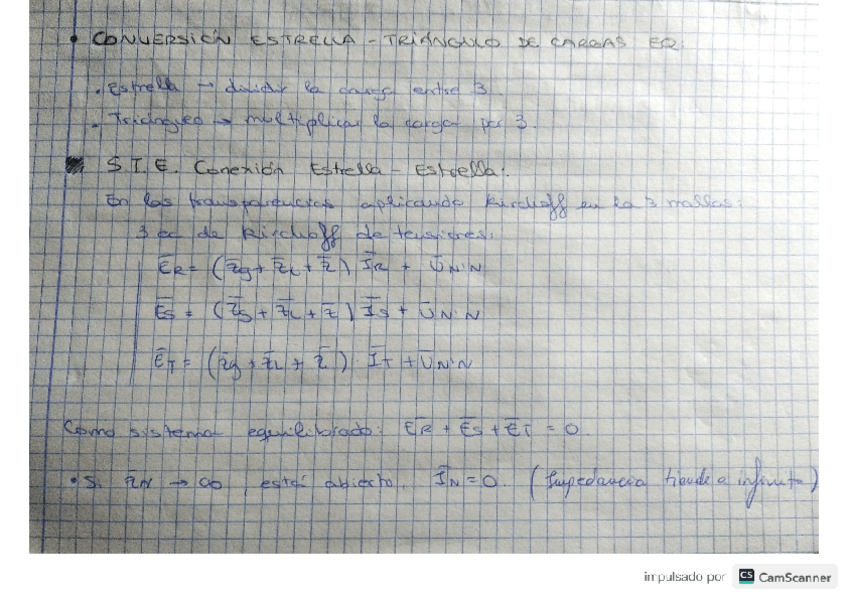 • CONVERSIÓN ESTRELLA - TRIÁNGULO DE CARGAS EQ.
• Estrella → dividir la carga entre 3.
• Triángulo → multiplicar la carga por 3.
S.T.E. Conexión Estrella - Estrella:
En las transparencias aplicando Kirchoff en la 3 mallas:
3 ec de Kirchoff de tensiones:
E̅R = (z̅g + z̅L + z̅) I̅R + U̅N'N
E̅S = (z̅g + z̅L + z̅) I̅S + U̅N'N
E̅T = (z̅g + z̅L + z̅) · I̅T + U̅N'N
Como sistema equilibrado: E̅R + E̅S + E̅T = 0.
• Si z̅N → ∞, está abierto, I̅N = 0. (Impedancia tiende a infinito)
impulsado por CS CamScanner